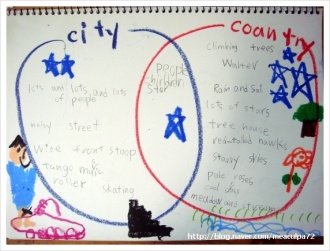 city
coantry
lots and lots and lots
of people
noisy street
wide front stoop
tango music
roller skating
people
children
star
climbing trees
Water
Rain and Sol
lots of stars
tree house
redtailed hawks
starry skies
pale roses
and
meddow and stream
http://blog.naver.com/meaculpa72